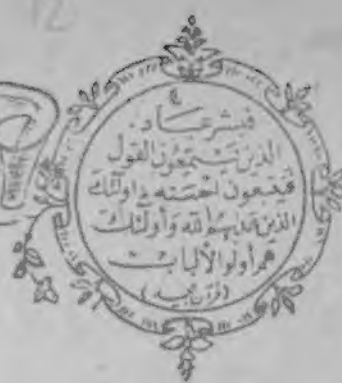 12
فبشر عباد
الذين يستمعون القول
فيتبعون احسنه اولئك
الذين هداهم الله وأولئك
هم أولو الألباب
(قرآن مجيد)